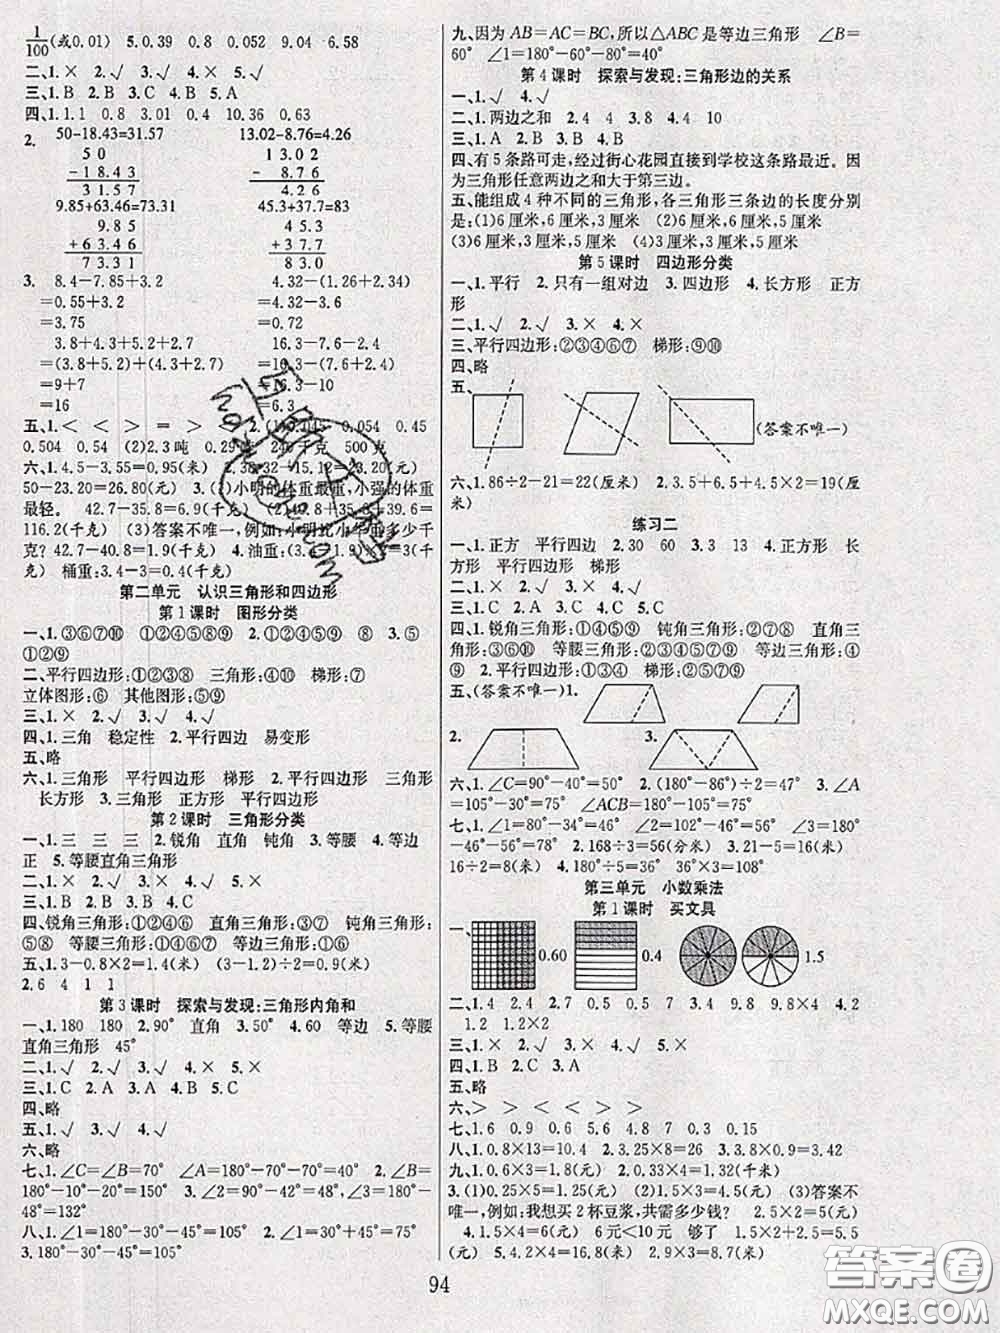 1/100(或0.01)  5.0.39  0.8  0.052  9.04  6.58
二、1.×  2.√  3.×  4.×  5.√
三、1.B  2.B  3.C  4.B  5.A
四、1.1.1  0.8  3.01  0.4  10.36  0.63
2. 50-18.43=31.57  13.02-8.76=4.26
50  13.02
-18.43  -8.76
31.57  4.26
9.85+63.46=73.31  45.3+37.7=83
9.85  45.3
+63.46  +37.7
73.31  83.0
3. 8.4-7.85+3.2  4.32-(1.36+3.6)
=0.55+3.2  =4.32-
=3.75
3.8+4.3+5.2+2.7  16.3-7.6-2.4
=(3.8+5.2)+(4.3+2.7)  (7.6+2.4)
=9+7  =16.3-10
=16  =6.3
五、1.<  <  >  =  >  2.(1)0.045  0.054  0.45
0.504  0.54  (2)2.3 吨  500 克
六、1.4.5-3.55=0.95(米)  2.38.32-15.12=23.20(元)
50-23.20=26.80(元)  3.(1)小明的体重最重,小强的体重
最轻。 42.7-35.8=6.9(千克)  (2)42.7+35.8+37.7=
116.2(千克)  (3)答案不唯一,例如:小明比小丰重多少千
克? 42.7-40.8=1.9(千克)  4.油重:
克)  桶重:3.4-3=0.4(千克)
第二单元  认识三角形和四边形
第1课时  图形分类
一、1.③⑥⑦⑩  ①②④⑤⑧⑨  2.①②④⑤⑨  ⑧  3.⑤
①②⑨
二、平行四边形:①②③⑧  三角形:④  梯形:⑦
立体图形:⑥  其他图形:⑤⑨
三、1.×  2.√  3.×  4.√  5.√
四、1.三角  稳定性  2.平行四边  易变形
五、略
六、1.三角形  平行四边形  梯形  2.平行四边形  三角形
长方形  3.三角形  正方形  平行四边形
第2课时  三角形分类
一、1.三  三  三  2.锐角  直角  钝角  3.等腰  4.等边
正  5.等腰直角三角形
二、1.×  2.√  3.√  4.×  5.×
三、1.B  2.C  3.B  4.B  5.C
四、锐角三角形:①②④⑥  直角三角形:③⑦  钝角三角形:
⑤⑧  等腰三角形:①④⑥⑦  等边三角形:①⑥
五、1.3-0.8×2=1.4(米)  (3-1.2)÷2=0.9(米)
2.6  4  1  1
第3课时  探索与发现:三角形内角和
一、1.180  180  2.90°  直角  3.50°  4.60  等边  5.等腰
直角三角形  45°
二、1.√  2.√  3.×  4.×
三、1.C  2.C  3.A  4.B  5.C
四、略
五、1.√  3.√  4.√
六、略
七、1.∠C=∠B=70°  ∠A=180°-70°-70°=40°  2.∠B=
180°-10°-20°=150°  3.∠2=90°-42°=48°  ∠1=180°
-48°=132°
八、1.∠1=180°-30°-45°=105°  2.∠1=30°+45°=75°
3.180°-30°-45°=105°
九、因为AB=AC=BC,所以△ABC是等边三角形  ∠B=
60°  ∠1=180°-60°-80°=40°
第4课时  探索与发现:三角形边的关系
一、1.√  4.√
二、1.两边之和  2.4  4  3.8  4.4  10
三、1.A  2.B  3.B  4.B
四、有5条路可走,经过街心花园直接到学校这条路最近。因
为三角形任意两边之和大于第三边。
五、能组成4种不同的三角形,各三角形三条边的长度分别
是:(1)6厘米,6厘米,3厘米  (2)6厘米,6厘米,5厘米
(3)6厘米,3厘米,5厘米  (4)3厘米,5厘米,5厘米
第5课时  四边形分类
一、1.平行  2.只有一组对边  3.四边形  4.长方形  正方
形
二、1.√  2.√  3.×  4.×
三、平行四边形:②③④⑥⑦  梯形:⑨⑩
四、略
五、
(答案不唯一)
六、1.86÷2-21=22(厘米)  2.3.5+6.5+4.5×2=19(厘
米)
练习二
一、1.正方  平行四边  2.30  60  3.3  13  4.正方形  长
方形  平行四边形  梯形
二、1.×  2.√  3.√  4.√  5.×
三、1.C  2.B  3.C  4.B  5.A
四、1.锐角三角形:①④⑤⑨  钝角三角形:②⑦⑧  直角三
角形:③⑥⑩  等腰三角形:②③④⑤⑨  等边三角形:④
⑨  2.平行四边形:①③④  梯形:②⑤⑥
五、(答案不唯一)1.
2.  3.
六、1.∠C=90°-40°=50°  2.(180°-86°)÷2=47°  3.∠A
=105°-30°=75°  ∠ACB=180°-105°=75°
七、1.∠1=80°  2.∠2=102°-46°=56°  ∠3=180°
-46°-56°=78°  2.168÷3=56(分米)  3.21-5=16(米)
16÷2=8(米)  4.180°÷5=36°  36°×3=108°
第三单元  小数乘法
第1课时  买文具
一、  0.60  0.4  1.5
二、1.4  2.4  2.7  0.5  0.5  7  3.0.9  0.3×3  4.2
1.2  1.2×2
三、1.×  2.√  3.√  4.√  5.×
四、1.B  2.C  3.A
五、略
六、>  >  <  <  <  >
七、1.6  0.9  5.6  5.6  4.8  7  0.3  0.15
八、1.0.8×13=10.4  2.3.25×8=26  3.3.8×3=11.4
九、1.0.6×3=1.8(元)  2.0.33×4=1.32(千米)
3.(1)0.25×5=1.25(元)  (2)1.5×3=4.5(元)  (3)答案不
唯一,例如:我想买2杯豆浆,共需多少钱?  2.5×2=5
(元)  4.1.5×4=6(元)  6元<10元  够了  1.5+2+2.5=5.5
(元)  5.4.2×4=16.8(米)  2.9×3=8.7(米)
94
答案圈
MXQE.COM